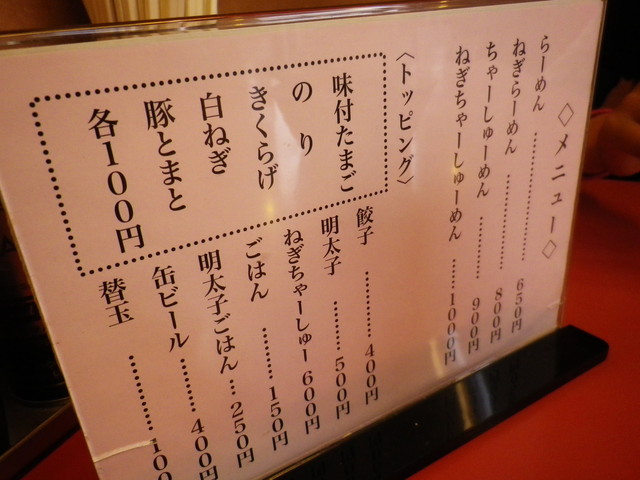 ◇メニュー◇
らーめん ………… 650円
ねぎらーめん ………… 800円
ちゃーしゅーめん ……… 900円
ねぎちゃーしゅーめん …… 1000円
〈トッピング〉
味付たまご
のり
きくらげ
白ねぎ
豚とまと
各100円
餃子 ………… 400円
明太子 ……… 500円
ねぎちゃーしゅー 600円
ごはん ……… 150円
明太子ごはん … 250円
缶ビール ……… 400円
替玉 ………… 100